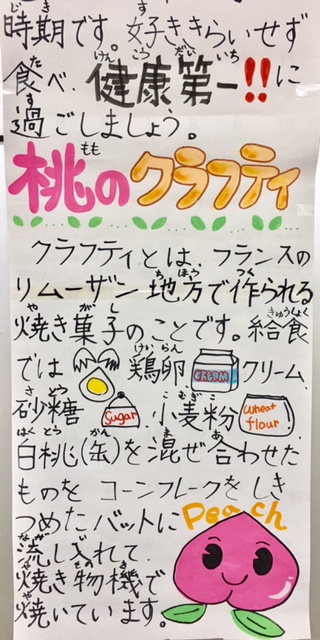 時期です。好ききらいせず
食べ、健康第一!!に
過ごしましょう。
桃のクラフティ
クラフティとは、フランスの
リムーザン地方で作られる
焼き菓子のことです。給食
では 鶏卵 CREAM クリーム、
砂糖 Sugar、小麦粉 Wheat flour
白桃(缶)を混ぜ合わせた
ものを コーンフレークをしき
つめたバットに Peach
流し入れて、
焼き物機で
焼いています。